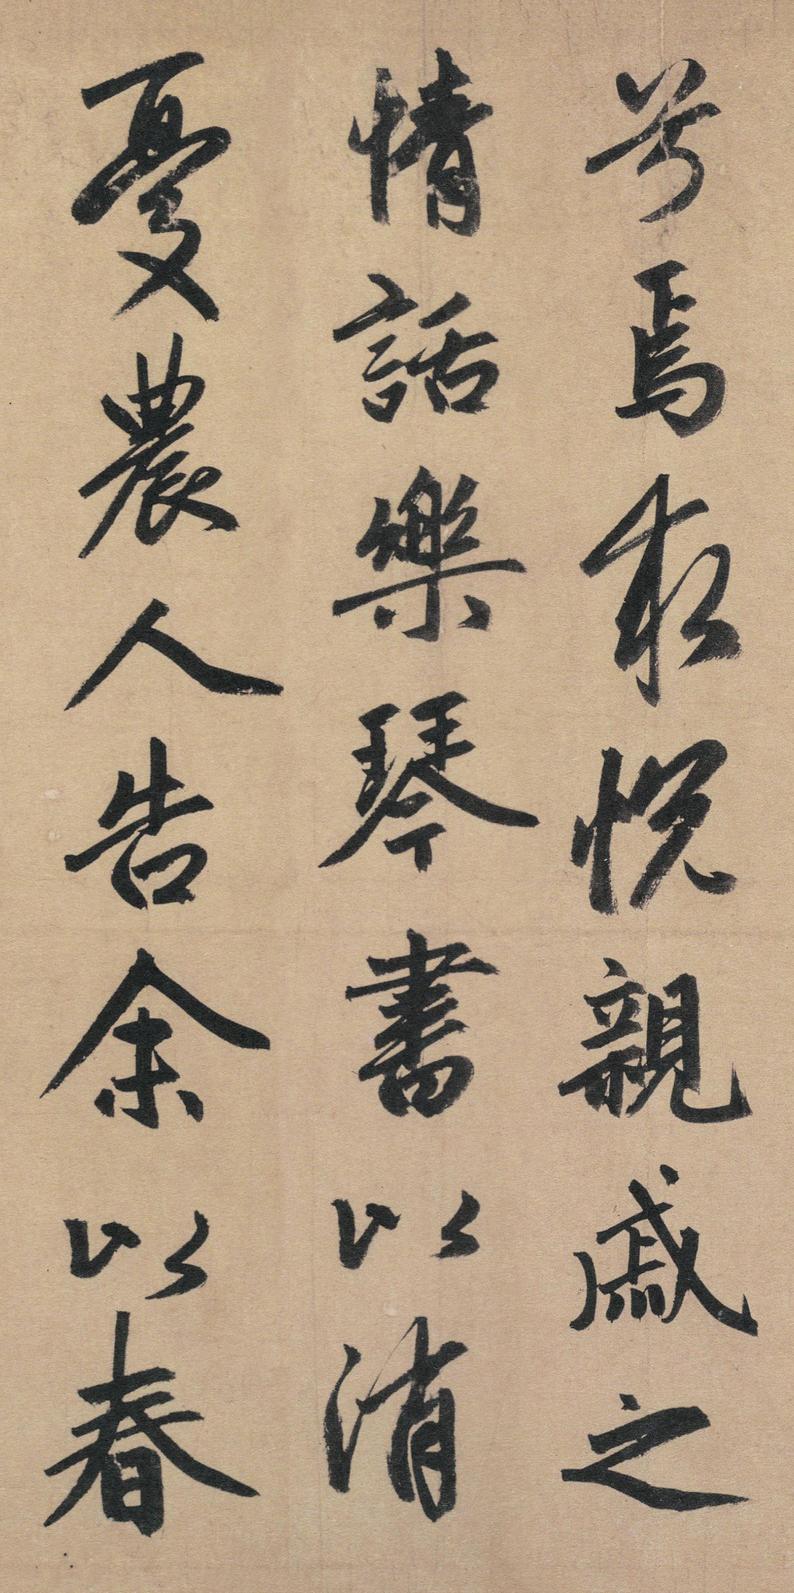 兮焉求悅親戚之
情話樂琴書以消
憂農人告余以春